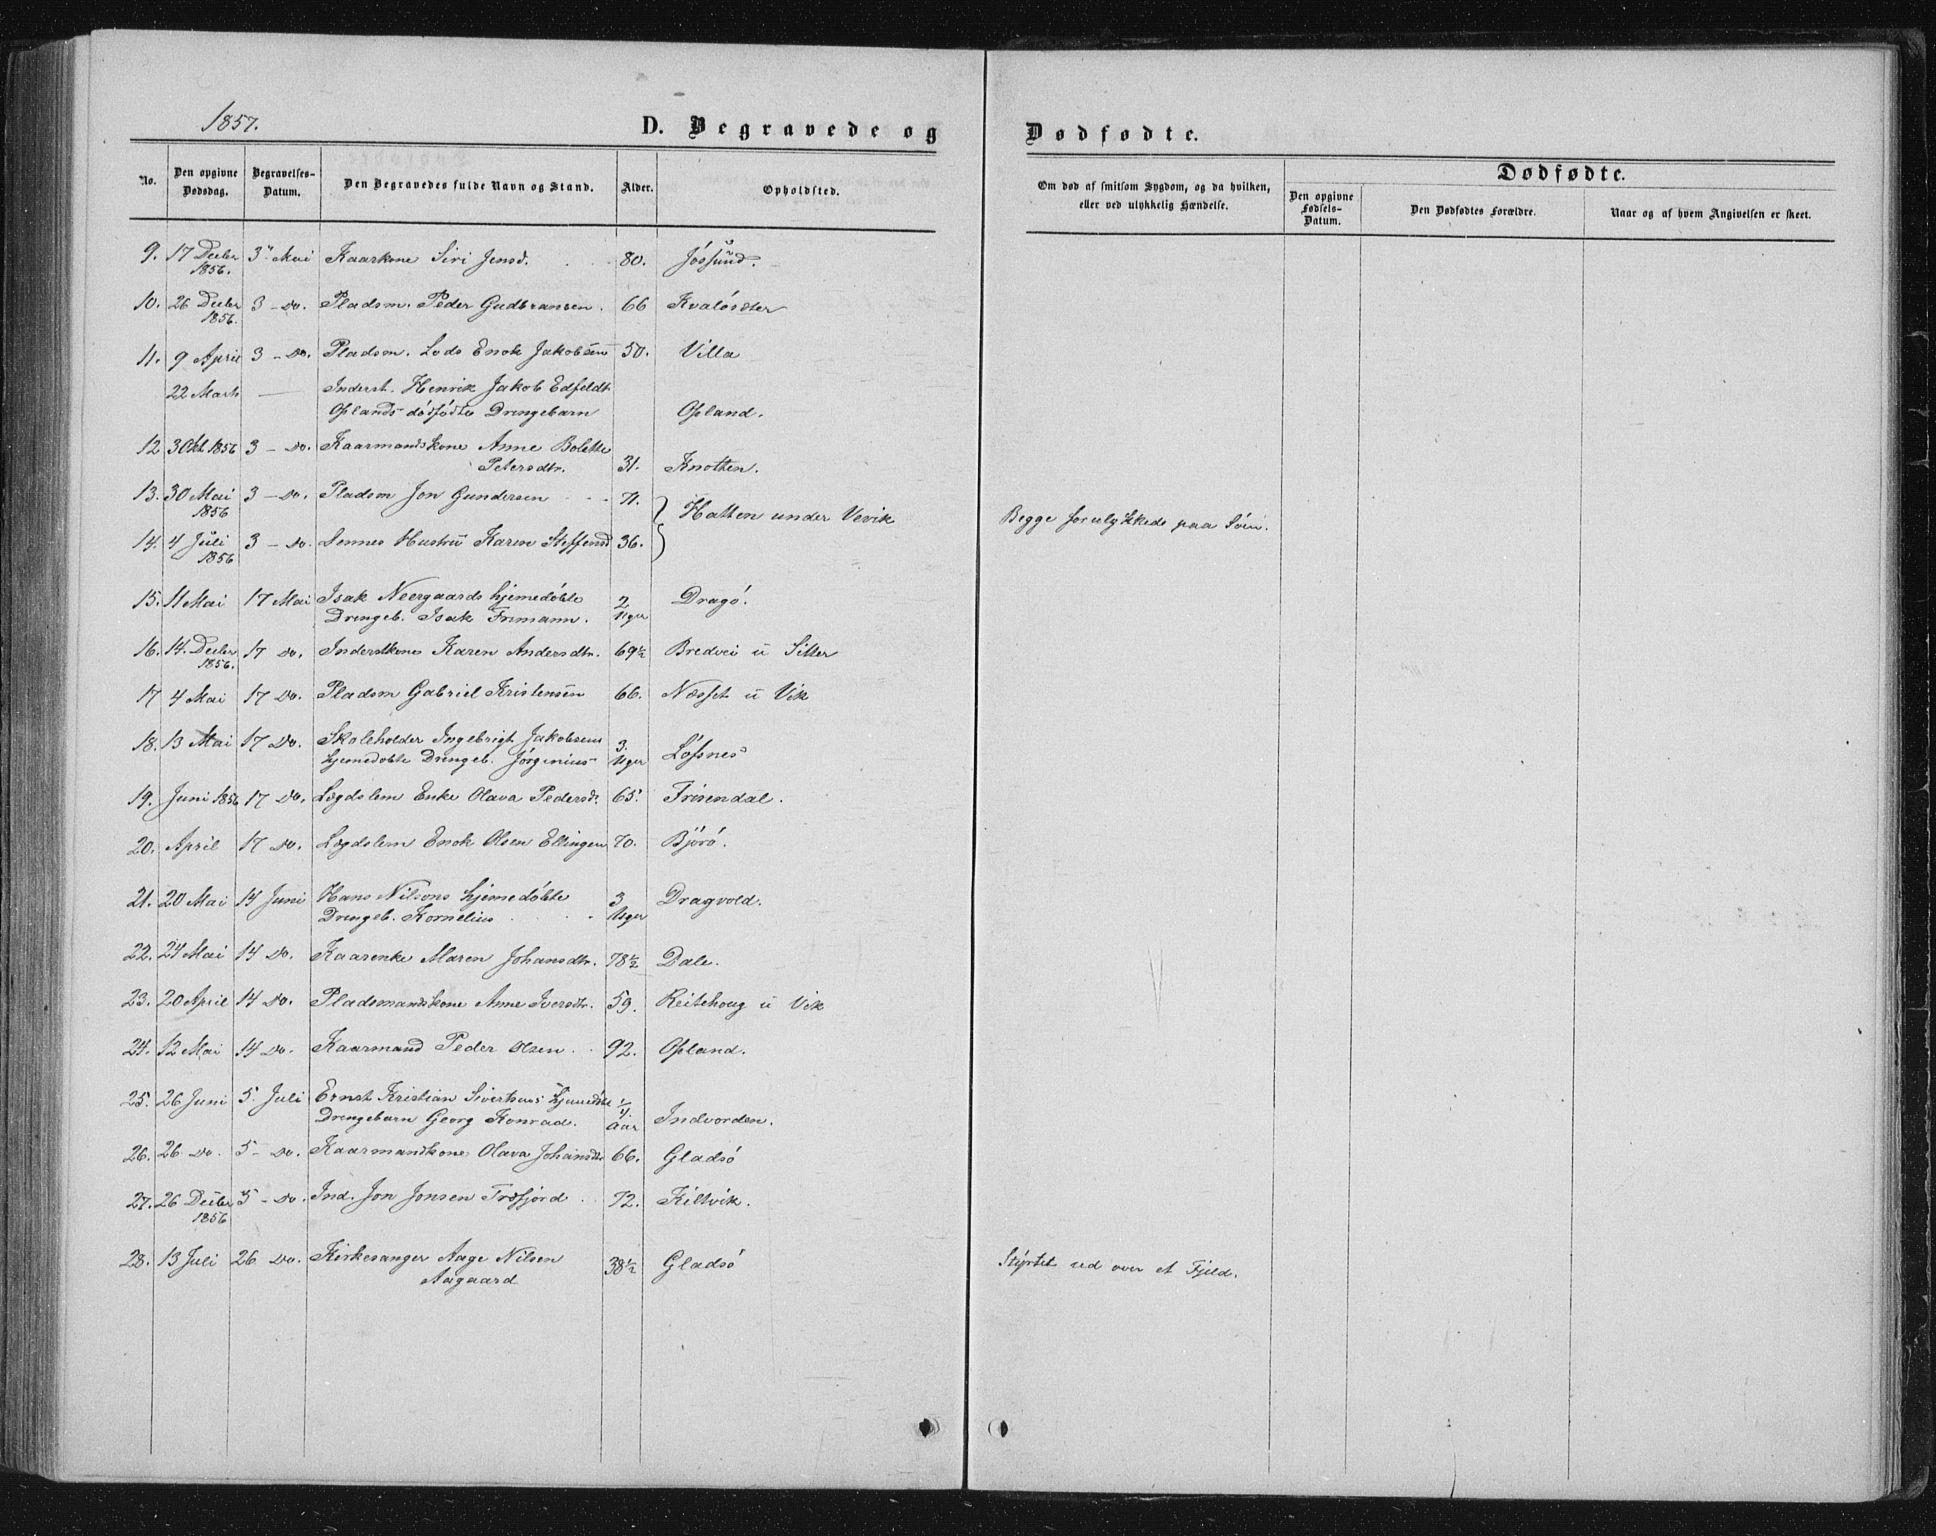 1857.
D. Begravede og Dødfødte.
No.
Den opgivne Dødsdag.
Begravelses-Datum.
Den Begravedes fulde Navn og Stand.
Alder.
Opholdsted.
Om død af smitsom Sygdom, og da hvilken, eller ved ulykkelig Hændelse.
Dødfødte.
Den opgivne Fødsels-Datum.
Den Dødfødtes Forældre.
Naar og af hvem Angivelsen er skeet.
9. 17 Decbr 1856. 3 Mai Kaarkone Siri Jensd. 80. Jøssund.
10. 26 Decbr 1856. 3 - Do. Pladsm. Peder Gudbransen. 66 Kvaløsæter
11. 9 April 3 - Do. Pladsm. Lods Enok Jakobsen 50. Villa
22 Marts — Inderst. Henrik Jakob Edfeldt
Oplands dødfødte Drengebarn Opland.
12 3 Okt 1856 3 - Do. Kaarmandskone Anne Bolette
Petersdtr. 31. Knotten.
13. 30 Mai 1856 3 - Do. Pladsm Jon Gundersen 71. Hatten under Vevik Begge forulykkede paa Søen.
14. 4 Juli 1856 3 - Do. Dennes Hustru Karen Steffensd 36.
15. 11 Mai 17 Mai Isak Neergaards hjemedøbte
Drengeb. Isak Frimann. 2 Uger Dragø.
16. 14. Decbr 1856. 17 Do. Inderstkone Karen Andersdtr. 69½ Bredvei u Sitter
17 4 Mai 17 Do. Pladsm Gabriel Kristensen 66. Næsset u Vik
18. 13 Mai 17 Do. Skoleholder Ingebrigt Jakobsens
hjemedøbte Drengeb. Jørginius 3. Uger Løssnes
19. Juni 1856 17 Do. Lægdslem Enke Olava Pedersd. 65. Frisendal.
20. April 17 Do. Lægdslem Enok Olsen Ellingen 70. Bjørø.
21. 20 Mai 14 Juni Hans Nilsens hjemedøbte
Drengeb. Kornelius 3 Uger Dragvold.
22. 24 Mai 14 Do. Kaarenke Maren Johansdtr. 78½ Dale.
23. 20 April 14 Do. Pladsmandskone Anne Iversdtr. 59. Reitehoug u Vik
24. 12 Mai 14 Do. Kaarmand Peder Olsen 92. Opland.
25. 26 Juni 5. Juli Ernst Kristian Siverts hjemedøbte
Drengebarn Georg Konrad. ¼ Aar Indvorden.
26. 26 Do. 5 - Do. Kaarmandskone Olava Johansdtr 66. Gladsø
27. 26 Decbr 1856 5 - Do. Ind. Jon Jonsen Træfjord 72. Kiltvik.
28. 13 Juli 26 Do. Kirkesanger Aage Nilsen
Aagaard 38½ Gladsø Styrtet ud over et Fjeld.